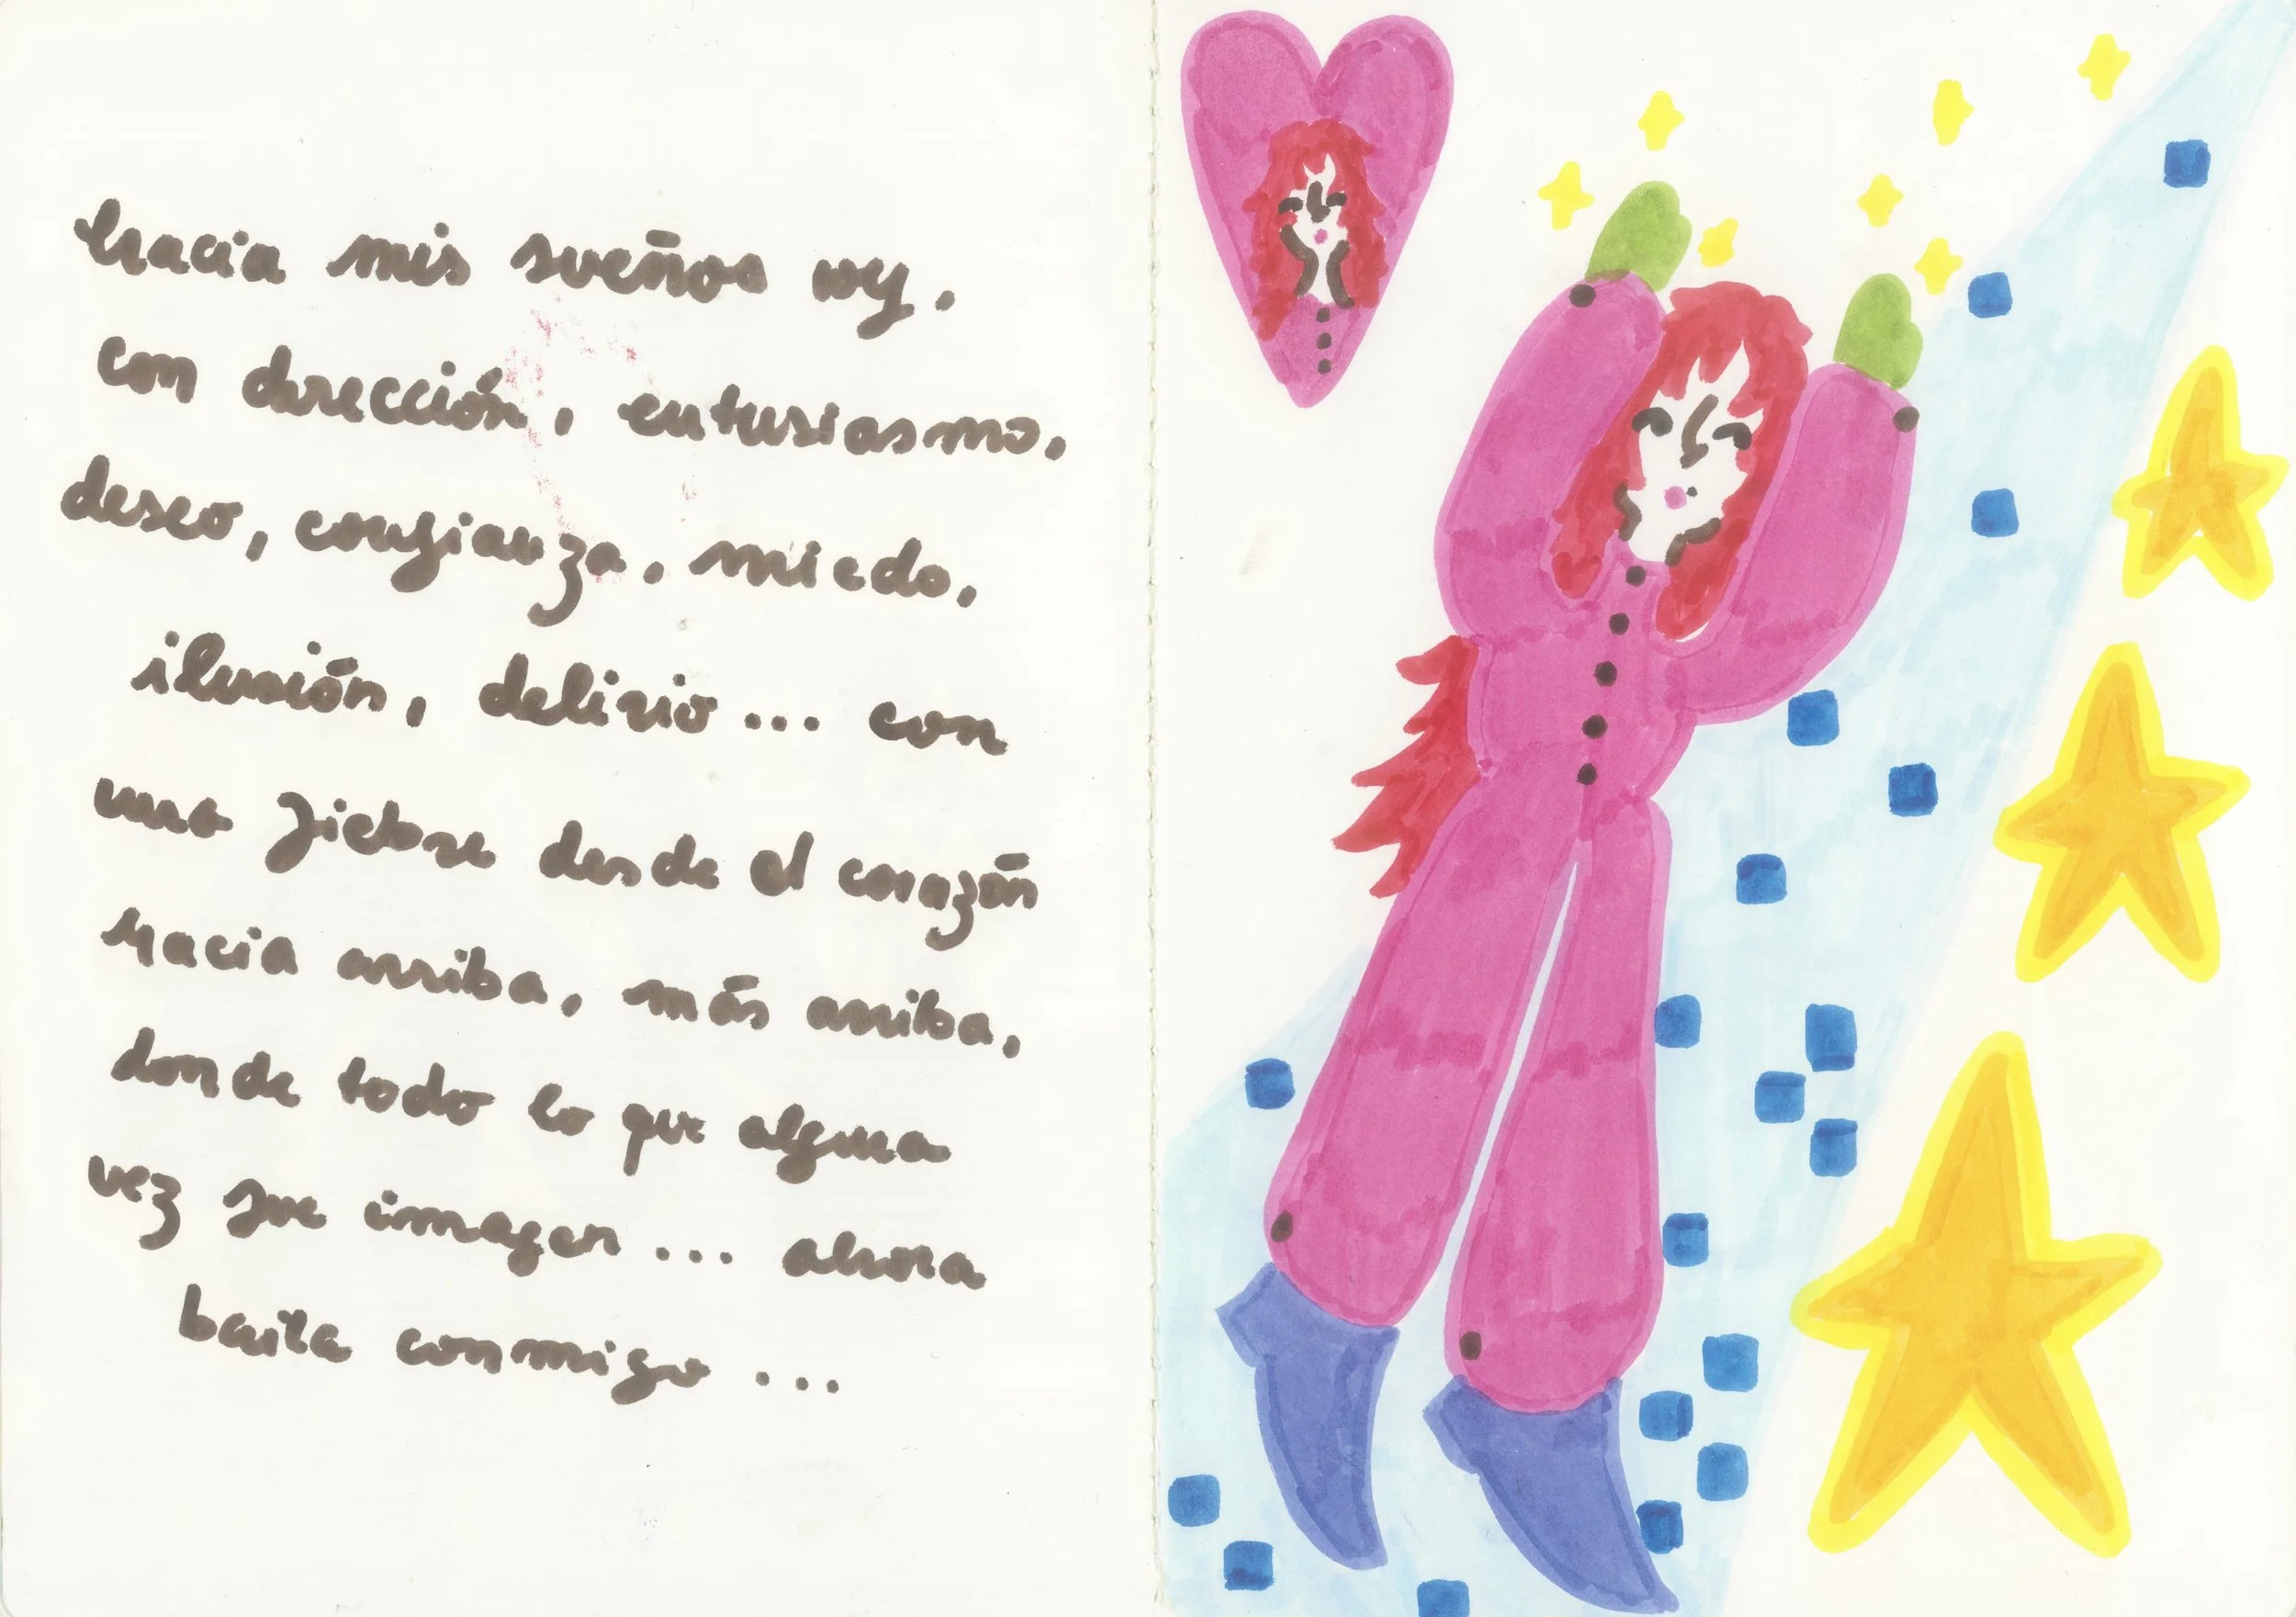 hacia mis sueños voy,
con dirección, entusiasmo,
deseo, confianza, miedo,
ilusión, delirio... con
una fiebre desde el corazón
hacia arriba, más arriba,
donde todo lo que alguna
vez fue imagen... ahora
baila conmigo...